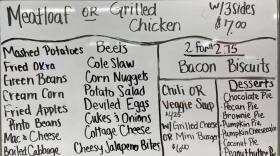 Meatloaf OR Grilled Chicken
W/3 Sides
$7.00
Mashed Potatoes
Fried Okra
Green Beans
Cream Corn
Fried Apples
Pinto Beans
Mac & Cheese
Boiled Cabbage
Beets
Cole Slaw
Corn Nuggets
Potato Salad
Deviled Eggs
Cukes & Onions
Cottage Cheese
Cheesy Jalapeno Bites
2 for $2.75
Bacon Biscuits
Chili OR
Veggie Soup
W/ Grilled Cheese
OR Mini Burger
$6.00
Desserts
Chocolate Pie
Pecan Pie
Brownie Pie
Pumpkin Pie
Pumpkin Cheesecake
Coconut Pie